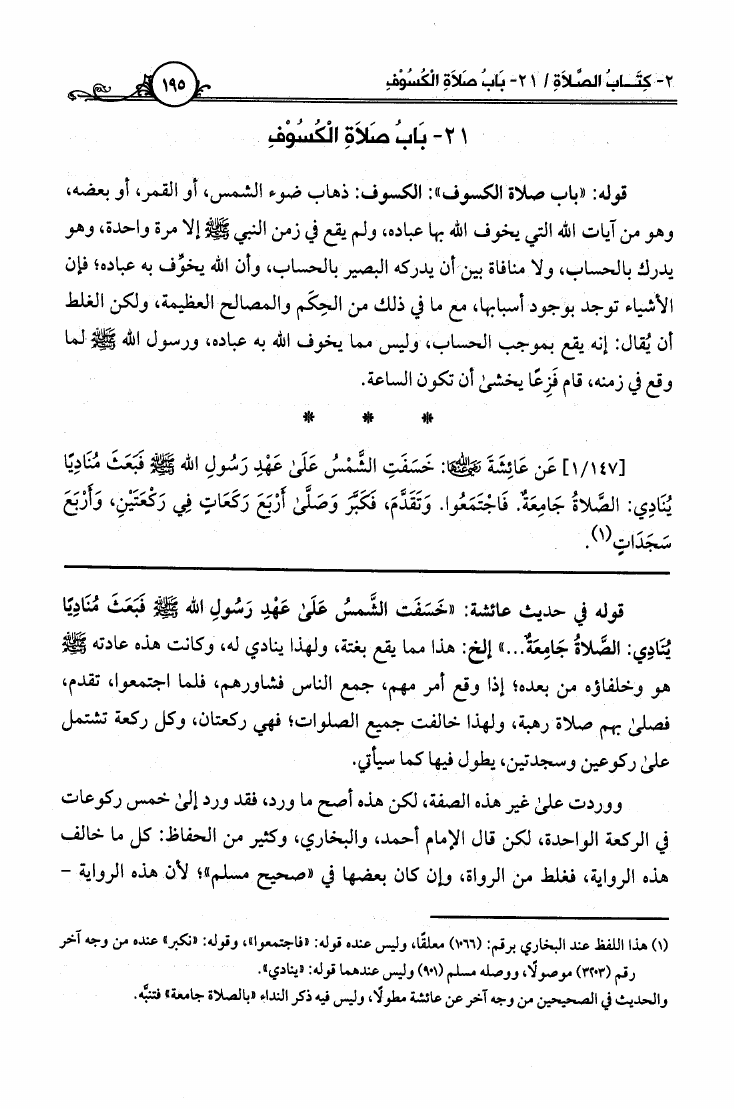 ٢- كِتَـابُ الصَّلَاةِ / ٢١- بَابُ صَلَاةِ الْكُسُوْفِ
١٩٥
٢١- بَابُ صَلَاةِ الْكُسُوْفِ
قوله: «باب صلاة الكسوف»: الكسوف: ذهاب ضوء الشمس، أو القمر، أو بعضه،
وهو من آيات الله التي يخوف الله بها عباده، ولم يقع في زمن النبي ﷺ إلا مرة واحدة، وهو
يدرك بالحساب، ولا منافاة بين أن يدركه البصير بالحساب، وأن الله يخوِّف به عباده؛ فإن
الأشياء توجد بوجود أسبابها، مع ما في ذلك من الحِكَم والمصالح العظيمة، ولكن الغلط
أن يُقال: إنه يقع بموجب الحساب، وليس مما يخوف الله به عباده، ورسول الله ﷺ لما
وقع في زمنه، قام فَزِعًا يخشىٰ أن تكون الساعة.
* * *
[١/١٤٧] عَن عَائِشَةَ رَضِيَ اللهُ عَنْهَا: خَسَفَتِ الشَّمْسُ عَلَىٰ عَهْدِ رَسُولِ الله ﷺ فَبَعَثَ مُنَادِيًا
يُنَادِي: الصَّلاةُ جَامِعَةٌ. فَاجْتَمَعُوا. وَتَقَدَّمَ، فَكَبَّرَ وَصَلَّىٰ أَرْبَعَ رَكَعَاتٍ فِي رَكْعَتَيْنِ، وَأَرْبَعَ
سَجَدَاتٍ(١).
قوله في حديث عائشة: «خَسَفَت الشَّمسُ عَلَىٰ عَهْدِ رَسُولِ الله ﷺ فَبَعَثَ مُنَادِيًا
يُنَادِي: الصَّلاةُ جَامِعَةٌ...» إلخ: هذا مما يقع بغتة، ولهذا ينادي له، وكانت هذه عادته ﷺ
هو وخلفاؤه من بعده؛ إذا وقع أمر مهم، جمع الناس فشاورهم، فلما اجتمعوا، تقدم،
فصلىٰ بهم صلاة رهبة، ولهذا خالفت جميع الصلوات؛ فهي ركعتان، وكل ركعة تشتمل
علىٰ ركوعين وسجدتين، يطول فيها كما سيأتي.
ووردت علىٰ غير هذه الصفة، لكن هذه أصح ما ورد، فقد ورد إلىٰ خمس ركوعات
في الركعة الواحدة، لكن قال الإمام أحمد، والبخاري، وكثير من الحفاظ: كل ما خالف
هذه الرواية، فغلط من الرواة، وإن كان بعضها في «صحيح مسلم»؛ لأن هذه الرواية -
(١) هذا اللفظ عند البخاري برقم: (١٠٦٦) معلقًا، وليس عنده قوله: «فاجتمعوا»، وقوله: «نكبر» عنده من وجه آخر
رقم (٣٢٠٣) موصولًا، ووصله مسلم (٩٠١) وليس عندهما قوله: «ينادي».
والحديث في الصحيحين من وجه آخر عن عائشة مطولًا، وليس فيه ذكر النداء «بالصلاة جامعة» فتنبَّه.